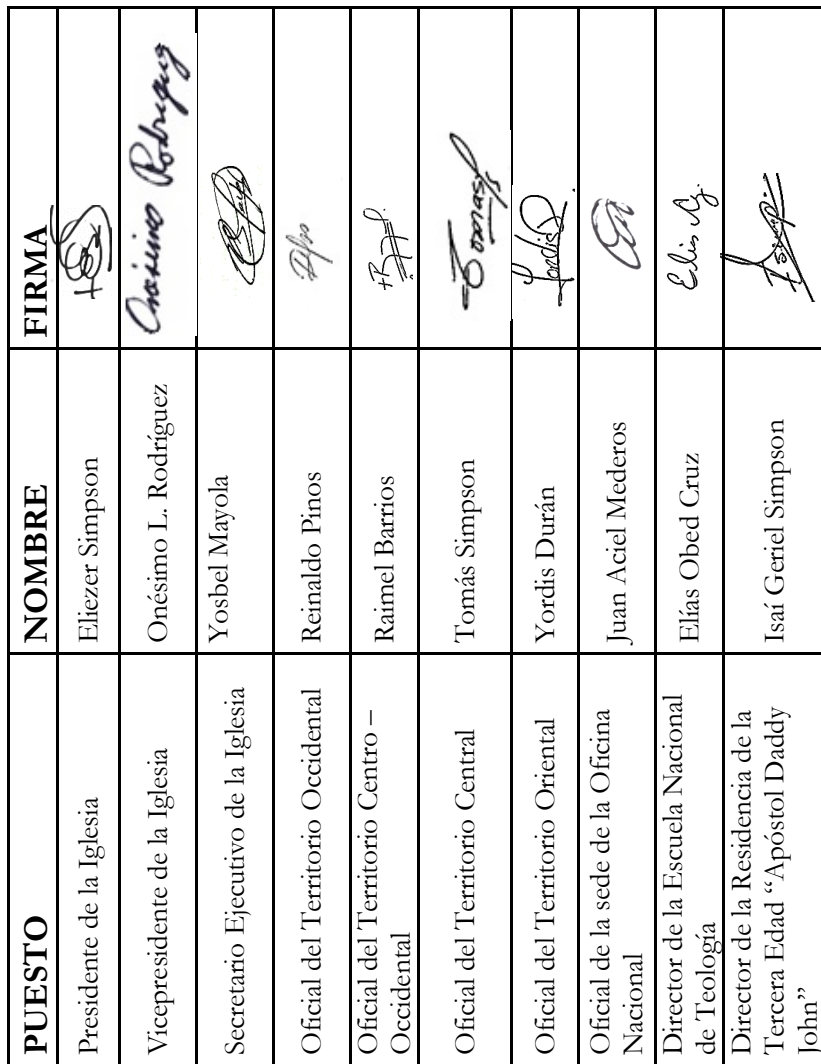 PUESTO NOMBRE FIRMA
Presidente de la Iglesia Eliezer Simpson
Vicepresidente de la Iglesia Onésimo L. Rodríguez Onésimo Rodríguez
Secretario Ejecutivo de la Iglesia Yosbel Mayola
Oficial del Territorio Occidental Reinaldo Pinos
Oficial del Territorio Centro –
Occidental Raimel Barrios
Oficial del Territorio Central Tomás Simpson Tomás
Oficial del Territorio Oriental Yordis Durán Yordis
Oficial de la sede de la Oficina
Nacional Juan Aciel Mederos
Director de la Escuela Nacional
de Teología Elías Obed Cruz
Director de la Residencia de la
Tercera Edad “Apóstol Daddy
John” Isaí Geriel Simpson